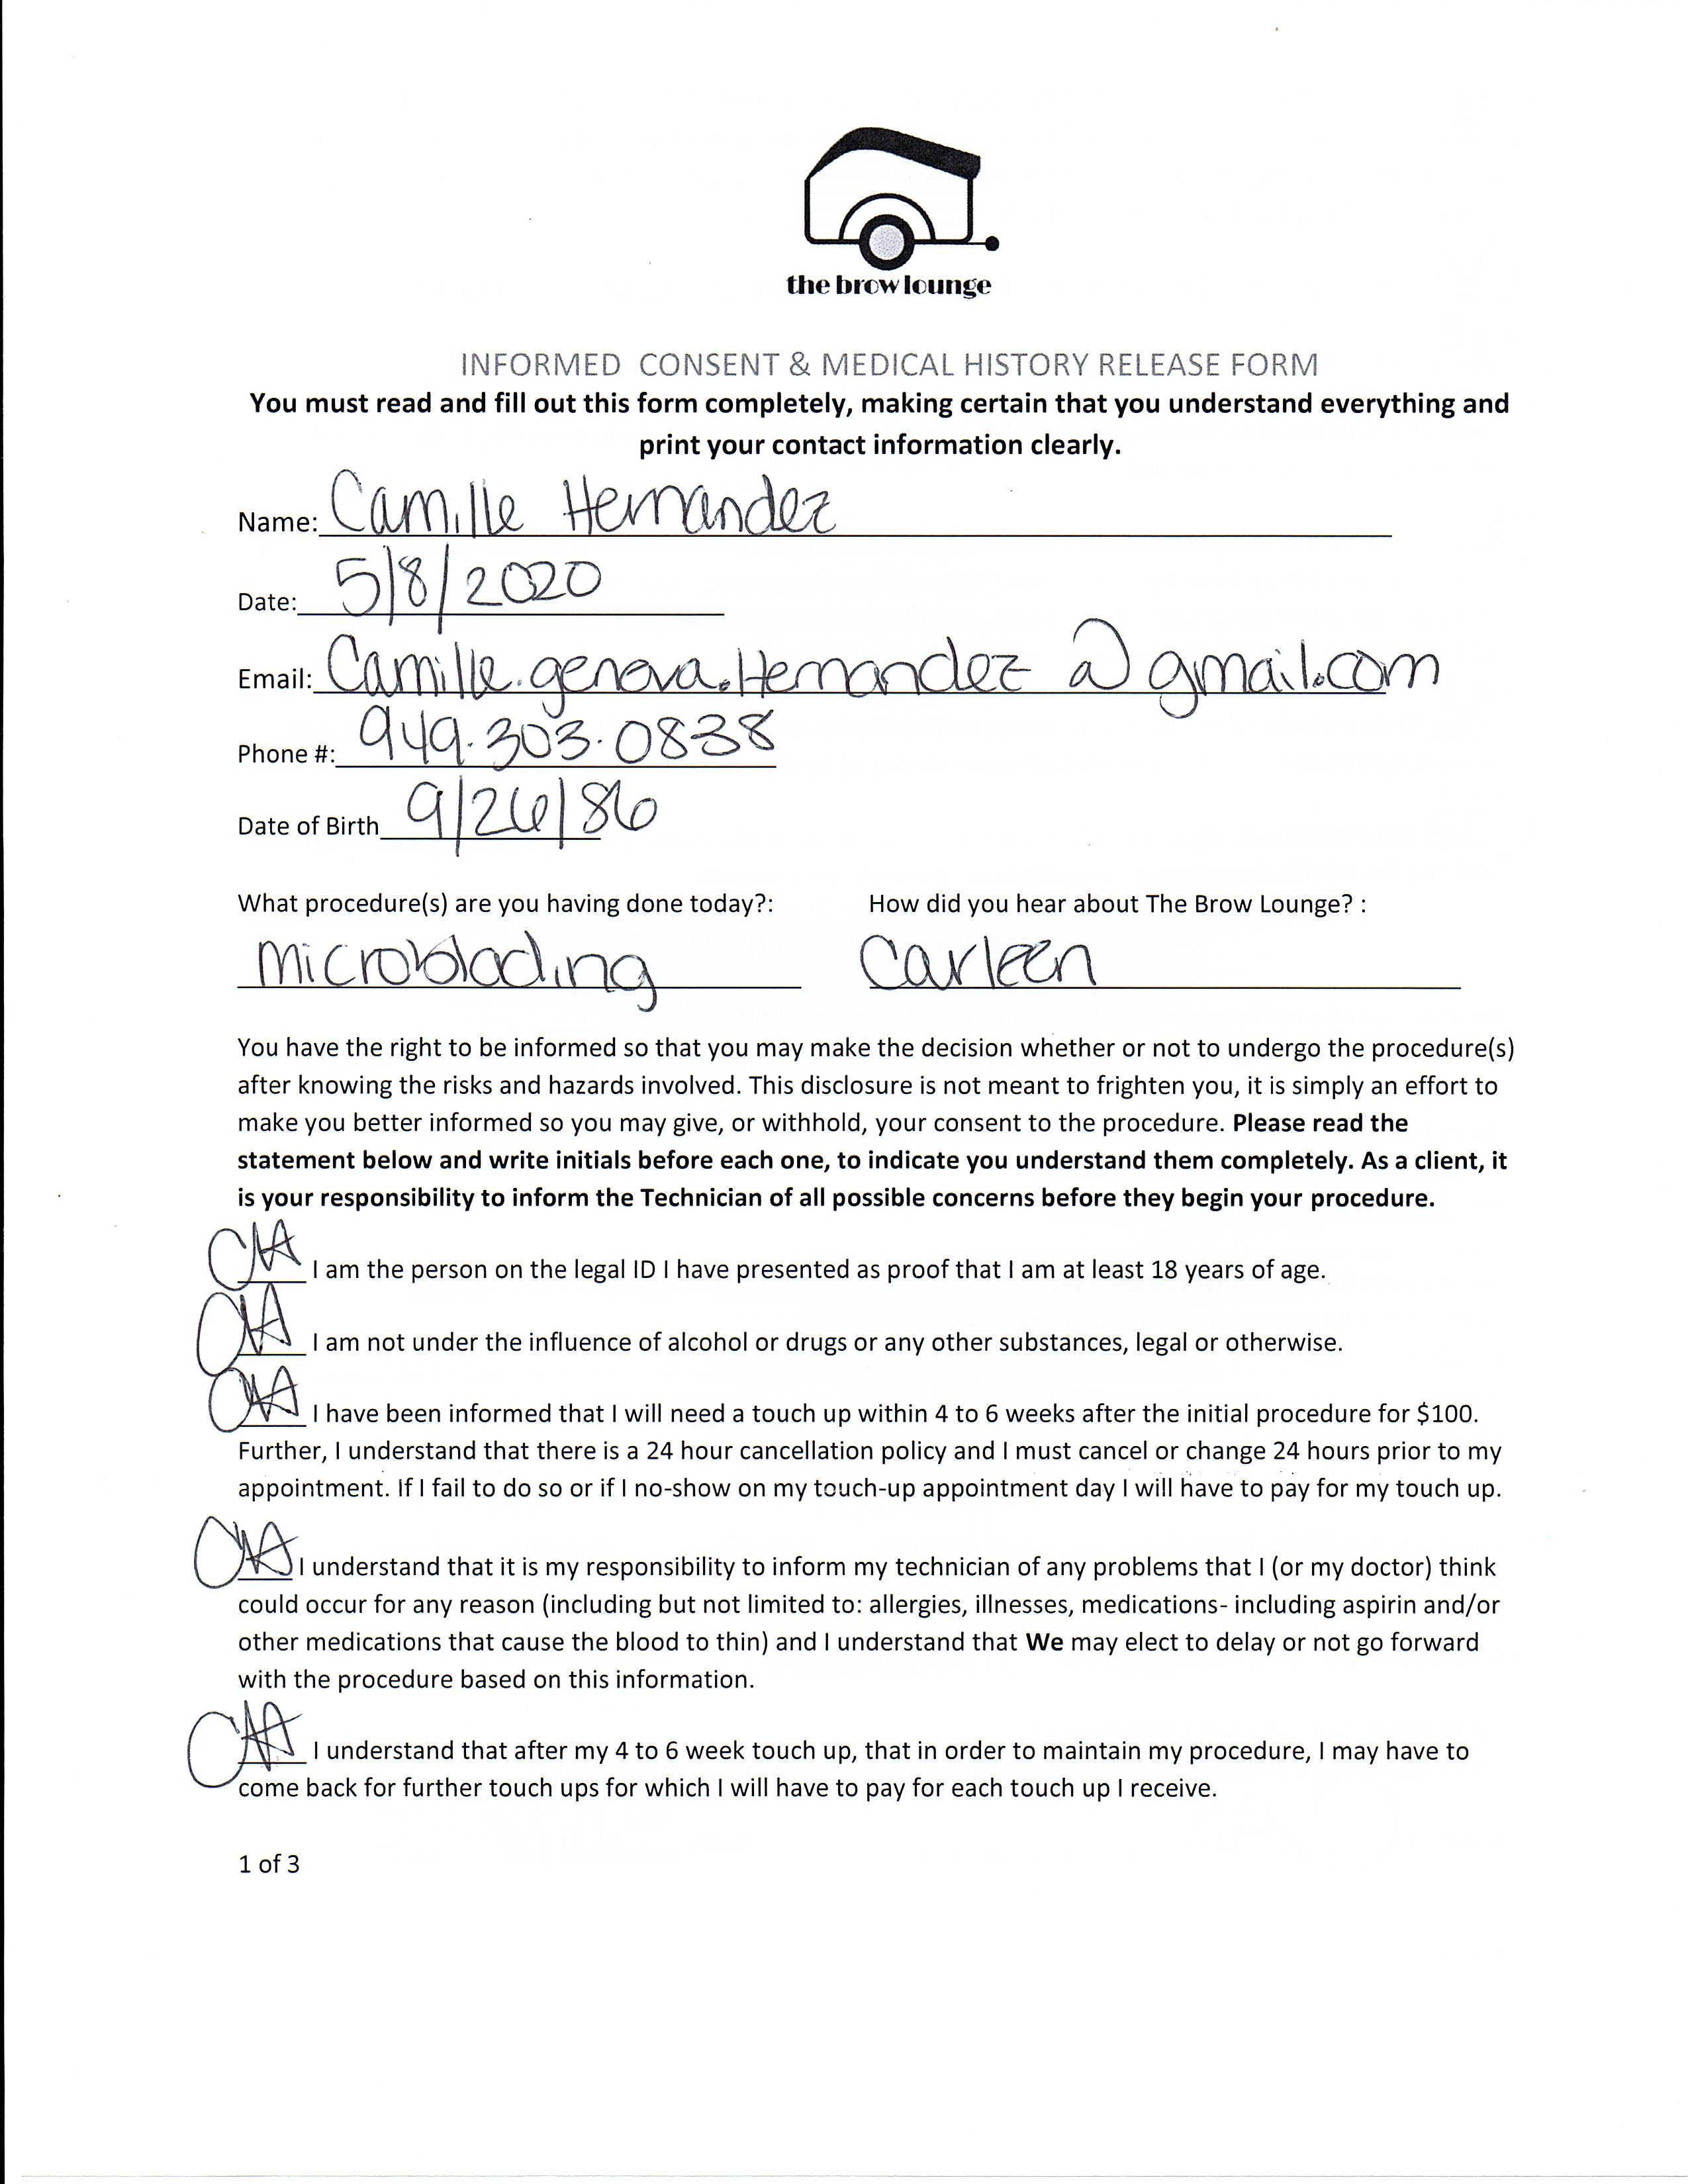 the brow lounge
INFORMED CONSENT & MEDICAL HISTORY RELEASE FORM
You must read and fill out this form completely, making certain that you understand everything and
print your contact information clearly.
Name: Camille Hernandez
Date: 5/8/2020
Email: Camille.genova.Hernandez @ gmail.com
Phone #: 949.303.0838
Date of Birth 9/26/86
What procedure(s) are you having done today?: How did you hear about The Brow Lounge? :
Microblading Carleen
You have the right to be informed so that you may make the decision whether or not to undergo the procedure(s)
after knowing the risks and hazards involved. This disclosure is not meant to frighten you, it is simply an effort to
make you better informed so you may give, or withhold, your consent to the procedure. Please read the
statement below and write initials before each one, to indicate you understand them completely. As a client, it
is your responsibility to inform the Technician of all possible concerns before they begin your procedure.
I am the person on the legal ID I have presented as proof that I am at least 18 years of age.
I am not under the influence of alcohol or drugs or any other substances, legal or otherwise.
I have been informed that I will need a touch up within 4 to 6 weeks after the initial procedure for $100.
Further, I understand that there is a 24 hour cancellation policy and I must cancel or change 24 hours prior to my
appointment. If I fail to do so or if I no-show on my touch-up appointment day I will have to pay for my touch up.
I understand that it is my responsibility to inform my technician of any problems that I (or my doctor) think
could occur for any reason (including but not limited to: allergies, illnesses, medications- including aspirin and/or
other medications that cause the blood to thin) and I understand that We may elect to delay or not go forward
with the procedure based on this information.
I understand that after my 4 to 6 week touch up, that in order to maintain my procedure, I may have to
come back for further touch ups for which I will have to pay for each touch up I receive.
1 of 3